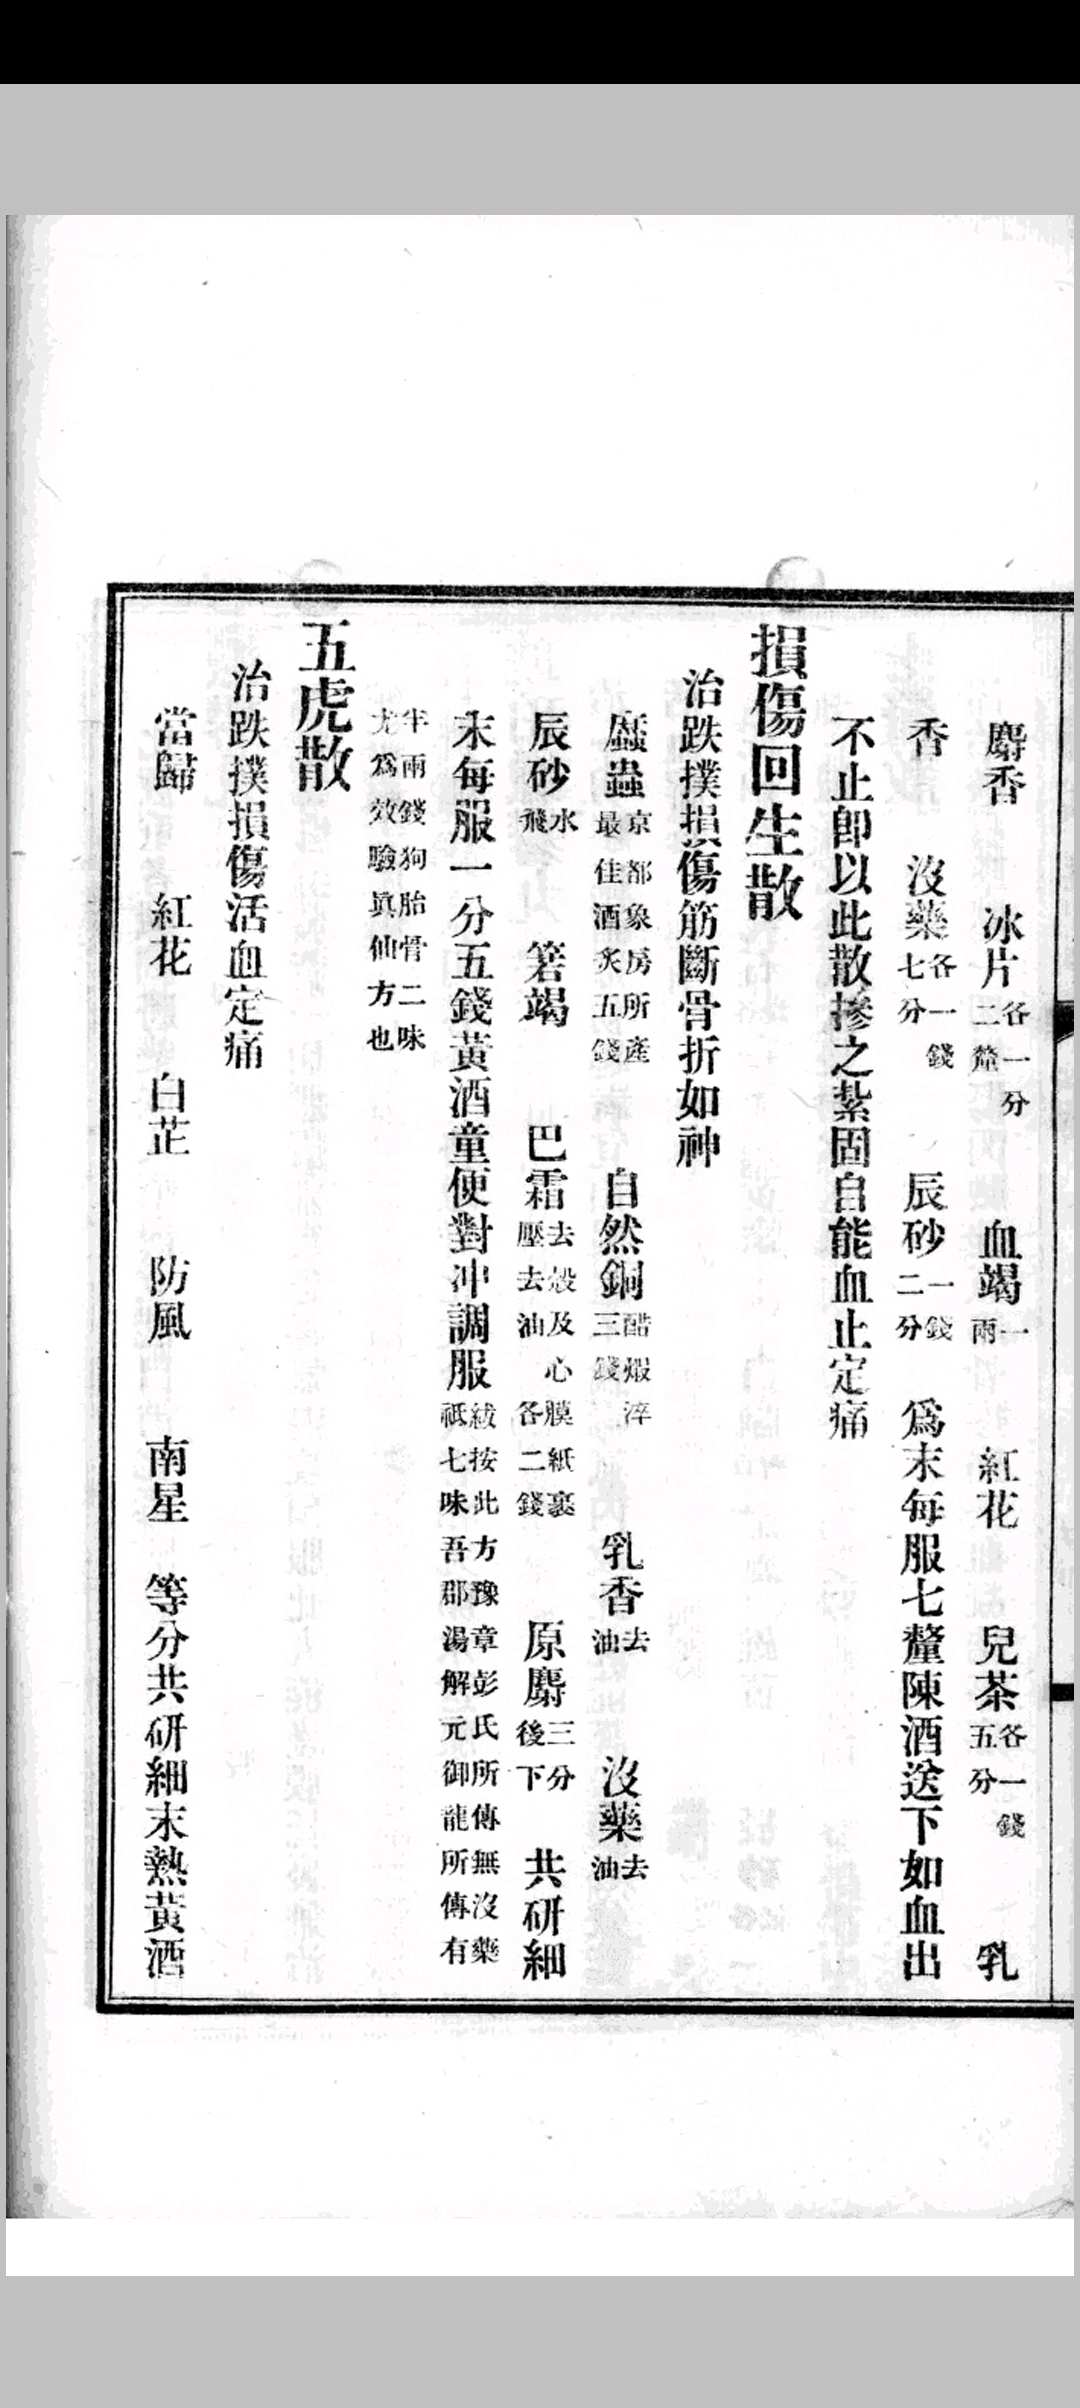 麝香　冰片各一分二釐　血竭一兩　紅花　兒茶各一錢五分　乳
香　沒藥各一錢七分　辰砂一錢二分　爲末每服七釐陳酒送下如血出
不止卽以此散摻之紮固自能血止定痛
損傷回生散
治跌撲損傷筋斷骨折如神
䗪蟲京都象房所產最佳酒炙五錢　自然銅醋煅淬三錢　乳香去油　沒藥去油
辰砂水飛　箬竭　巴霜去殼及心膜紙裹壓去油各二錢　原麝三分後下　共研細
末每服一分五錢黃酒童便對冲調服紱按此方豫章彭氏所傳無沒藥祗七味吾郡湯解元御龍所傳有
半兩錢狗胎骨二味尤爲效驗眞仙方也
五虎散
治跌撲損傷活血定痛
當歸　紅花　白芷　防風　南星　等分共研細末熱黃酒